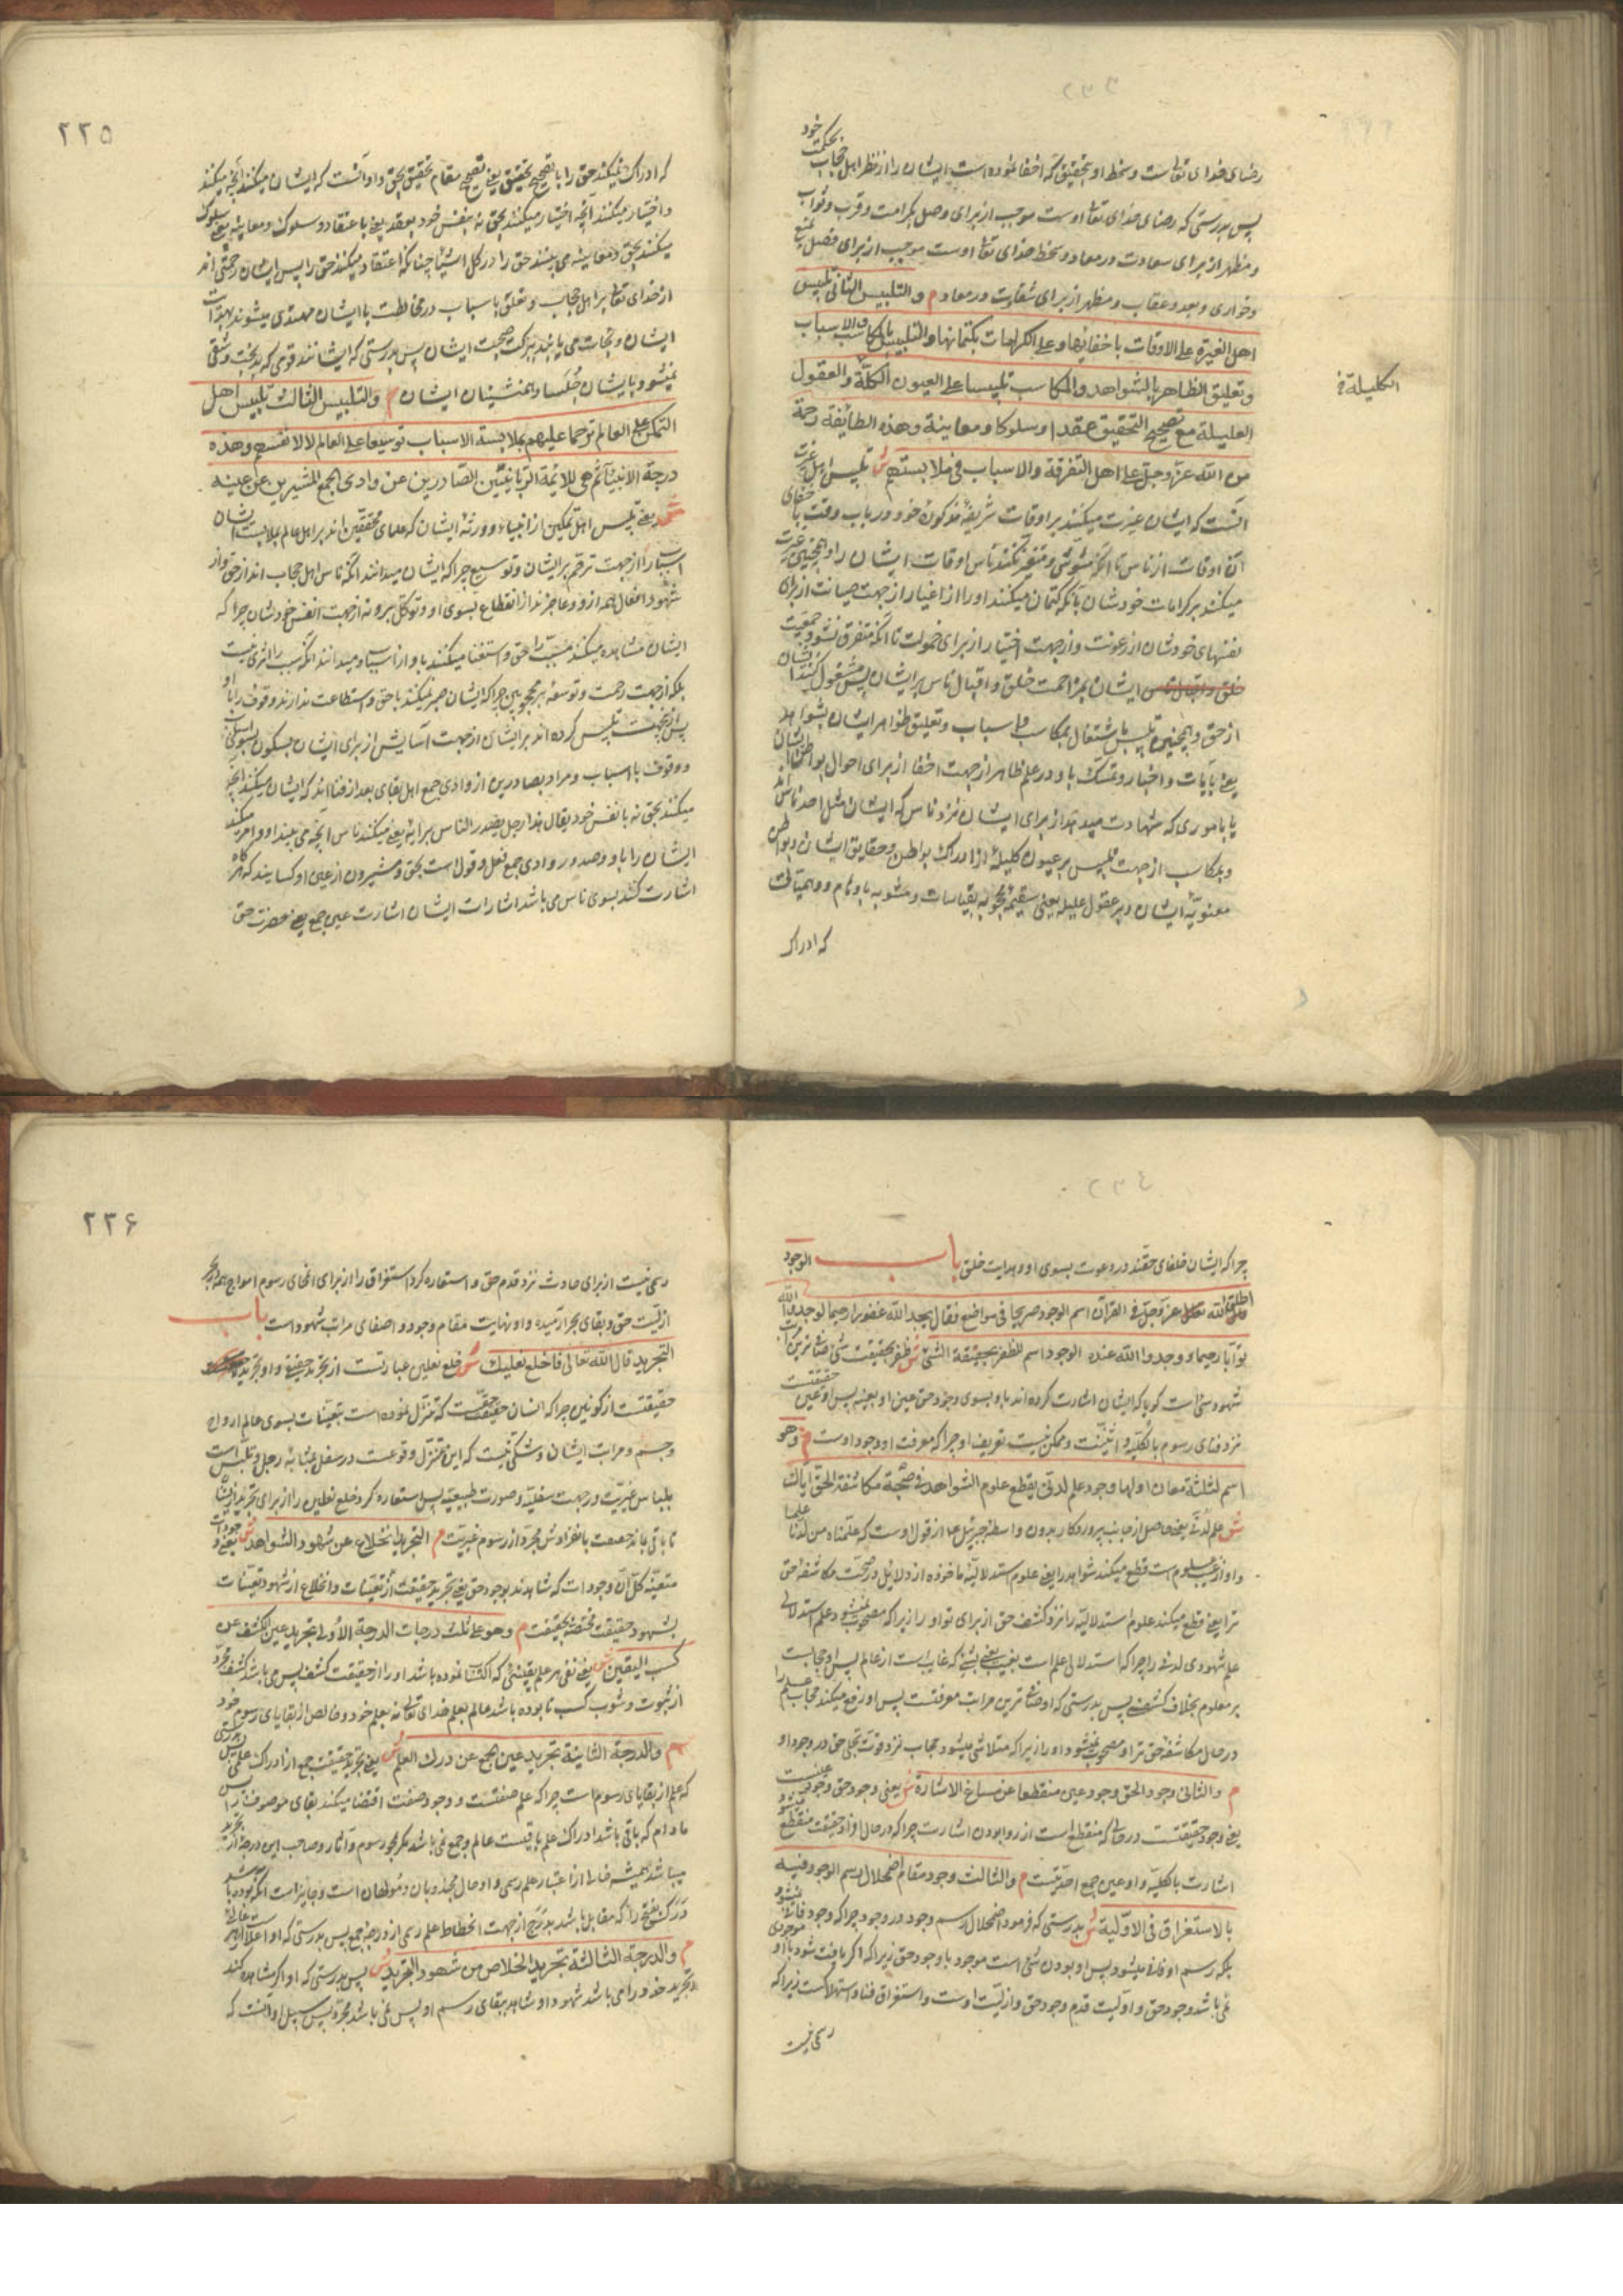 رضای خدای تعالست و سخط او بتحقیق که اخفا نموده است ایشان را از نظر اهل حجاب بحکمت خود
پس بدرستی که رضای خدای تعا اوست موجب از برای وصل بکرامت و قرب و ثواب
و مظهر از برای سعادت در معاد و سخط خدای تعا اوست موجب از برای فصل
و خواری و بعد و عقاب و مظهر از برای شقاوت در معاد م و التلبیس الثانی تلبیس
اهل الغیرة علی الاوقات باخفائها و علی الکرامات بکتمانها و التلبیس بالمکاسب و الاسباب
و تعلیق الظاهر بالشواهد و المکاسب تلبیسا علی العیون الکلّة و العقول
الکلیلة
العلیلة مع تصحیح التحقیق عقدا و سلوکا و معاینة و هذه الطائفة رحمة
من الله عزّ و جلّ علی اهل التفرقة و الاسباب فی ملابستهم ش تلبیس اهل غیرت
آنست که ایشان غیرت میکنند بر اوقات شریفهٔ مذکوره خود در باب وقت باخفای
آن اوقات از ناس تا آنکه مشوش و متغیر نکنند ناس اوقات ایشان را و همچنین غیرت
میکنند بر کرامات خودشان بآنکه کتمان میکنند او را از اغیار از جهت صیانت از برای
نفسهای خودشان از رعونت و از جهت اختیار از برای خمولت تا آنکه متفرق نشود جمعیت
ایشان بمزاحمت خلق و اقبال ناس بر ایشان پس مشغول کنند ایشان
از حق و همچنین تلبیس باشتغال بمکاسب و اسباب و تعلیق ظواهر ایشان بشواهد
یعنی بآیات و اخبار و تمسک باو در علم ظاهر از جهت اخفا از برای احوال بواطن ایشان
یا باموری که شهادت میدهند از برای ایشان نزد ناس که ایشان مثل احد ناس اند
و بمکاسب از جهت تلبیس بر عیون کلیله از ادراک بواطن و حقایق ایشان و بواطن
معنویّهٔ ایشان و بر عقول علیله یعنی سقیمهٔ محجوبه بقیاسات و مشوبه باوهام و وهمیات
که ادراک
۲۲۵
که ادراک نمیکند حق را با تصحیح تحقیق یعنی تصحیح مقام تحقیق بحق و او آنست که ایشان میکنند آنچه میکنند
و اختیار میکنند آنچه اختیار میکنند بحق نه بنفس خود بعقد یعنی باعتقاد و سلوک و معاینه یعنی سلوک
میکنند بحق و معاینه می بینند حق را در کل اشیا چنانکه اعتقاد میکنند حق را پس ایشان رحمتی اند
از خدای تعا بر اهل حجاب و تعلق باسباب در مخالطت با ایشان مهتدی میشوند بهدایت
ایشان و نجات می یابند ببرکت صحبت ایشان پس بدرستی که ایشانند قومی که بدبخت و شقی
نمیشود بایشان جلسا و همنشینان ایشان م و التلبیس الثالث تلبیس اهل
التمکن علی العالم ترحما علیهم بملابسة الاسباب توسیعا علی العالم لا لانفسهم و هذه
درجة الانبیاء ثم هی للائمة الربانیین الصادرین عن وادی الجمع المشیرین عن عینه
ش یعنی تلبیس اهل تمکین از انبیاء و ورثهٔ ایشان که علمای محققین اند بر اهل عالم بملابست ایشان
اسباب را از جهت ترحم بر ایشان و توسیع چرا که ایشان میدانند آنکه ناس اهل حجاب اند از حق و از
شهود افعال همه از او و عاجزند از انقطاع بسوی او و توکل برو نه از جهت انفس خودشان چرا که
ایشان مشاهده میکنند مسبب را حق و استغنا میکنند باو از اسباب و میدانند آنکه سبب را اثری نیست
بلکه از جهت رحمت و توسعه بر محجوبین چرا که ایشان صبر نمیکنند با حق و استطاعت ندارند وقوف را با او
پس ازین جهت تلبیس کرده اند بر ایشان از جهت آسایش از برای ایشان بسکون بسوی اسباب
و وقوف با اسباب و مراد بصادرین از وادی جمع اهل بقای بعد از فنا اند که ایشان میکنند آنچه
میکنند بحق نه بانفس خود یقال هذا رجل یصدر الناس برایه یعنی میکنند ناس آنچه می بیند او و امر میکند
ایشان را باو و صدور وادی جمع فعل و قول است بحق و مشیرون از عین او کسانیند که هرگاه
اشارت کنند بسوی ناس می باشد اشارات ایشان اشارت عین جمع یعنی حضرت حق
چرا که ایشان خلفای حقند در دعوت بسوی او و هدایت خلق باب الوجود
اطلق الله عز و جلّ فی القرآن اسم الوجود صریحا فی مواضع فقال یجد الله غفورا رحیما لوجدوا الله
توّابا رحیما و وجدوا الله عنده الوجود اسم للظفر بحقیقة الشئ ش ظفر بحقیقت شئ
شهود شئ است گویا که ایشان اشارت کرده اند باو بسوی وجود حق عین او بعینه پس او عین حقیقتست
نزد فنای رسوم بالکلیّه و اثنینت و ممکن نیست تعریف او چرا که معرفت او وجود اوست م و هو
اسم لثلثة معان اولها وجود علم لدنی یقطع علوم الشواهد فی صحبة مکاشفة الحق ایاک
ش علم لدنی یعنی حاصل از جانب پروردگار بدون واسطهٔ جبرئیل ماخوذ از قول اوست که علمناه من لدنا علما
قطع میکند شواهد را یعنی علوم استدلالیّه ماخوذه از دلایل در صحبت مکاشفهٔ حق
ترا یعنی قطع میکند علوم استدلالیّه را نزد کشف حق از برای تو او را زیرا که مصحوب نمیشود علم استدلالی
علم شهودی لدنی را چرا که استدلالی علم است بغیب یعنی بشئ که غایب است از عالم پس او حجابست
بر معلوم بخلاف کشفی پس بدرستی که او صاف ترین مراتب معرفتست پس او رفع میکند حجاب علم را
در حال مکاشفهٔ حق ترا و مصحوب نمیشود او را زیرا که متلاشی میشود حجاب نزد قوت تجلی حق در وجود او
م و الثانی وجود الحق وجود عین منقطعا عن مساغ الاشارة ش یعنی وجود حق وجود عینیست
یعنی وجود حقیقتست در حالی که منقطع است از روا بودن اشارت چرا که در حال او از حقیقت منقطع میشود
اشارت بالکلیّه و او عین جمع احدیّتست م و الثالث وجود مقام اضمحلال رسم الوجود فیه
بالاستغراق فی الاوّلیة ش بدرستی که فرمود اضمحلال رسم وجود در وجود چرا که وجود فانی نمیشود
بلکه رسم او فانی میشود پس او بودن شئ است موجود باوجود حق زیرا که اگر یافت شود با او موجودی
نمی باشد وجود حق و اوّلیت قدم وجود حق و ازلیّت اوست و استغراق فنا و استهلاکست زیرا که
رسمی نیست
۲۲۶
رسمی نیست از برای حادث نزد قدم حق و استعاره کرد استغراق را از برای انمحای رسوم امواج همه در بحر
ازلیّت حق و بقای بحر ازلیّه و او نهایت مقام وجود و اصفای مراتب شهود است باب
التجرید قال الله تعالی فاخلع نعلیک ش خلع نعلین عبارتست از تجرید حقیقی و او تجرید
حقیقتست از کونین چرا که انسان حقیقت حقیّت که تنزل نموده است بتعینات بسوی عالم ارواح
و جسم و مراتب ایشان و شکی نیست که این تنزل وقوعست در سفل بمثابهٔ رجل و تلبس است
بلباس غیریّت در جهت سفلیّه و صورت طبیعیّه پس استعاره کرد خلع نعلین را از برای تجرید ایشان
تا باقی ماند حقیقت بانفرادش مجرد از رسوم غیریّت م التجرید انخلاع عن شهود الشواهد ش یعنی وجودات
متعیّنه کل آن وجودات که شاهدند بوجود حق یعنی تجرید حقیقت از تعینات و انخلاع از شهود تعینات
بشهود حقیقت مختصّهٔ بحقیقت م و هو علی ثلث درجات الدرجة الاولی تجرید عین الکشف عن
کسب الیقین ش یعنی نفی هر علم یقینی که اکتساب نموده باشد او را از حقیقت کشف پس می باشد کشف مجرد
از ثبوت و شوب کسب تا بوده باشد عالم بعلم خدای تعالی نه بعلم خود و خالص از بقایای رسوم خود
م و الدرجة الثانیة تجرید عین الجمع عن درک العلم ش یعنی تجرید حقیقت جمع از ادراک علمی بدرستی
که علم از بقایای رسوم است چرا که علم صفتست و وجود صفت اقتضا میکند بقای موصوف را پس
مادام که باقی باشد ادراک علم باقیست عالم و جمع نمی باشد مگر بمحو رسوم و آثار و صاحب این درجه
میباشد همیشه خالی از اعتبار علم رسمی و او حال مجذوبان و مولهان است و جایز است آنکه بوده باشد
درک بفتح را که مقابل باشد بدرج از جهت انحطاط علم رسمی از درجهٔ جمع پس بدرستی که او اعلاست
م و الدرجة الثالثة تجرید الخلاص من شهود التجرید ش پس بدرستی که او اگر مشاهده کند
تجرید خود را می باشد شهود او شاهد ببقای رسم او پس نمی باشد مجرد پس سبیل او آنست که